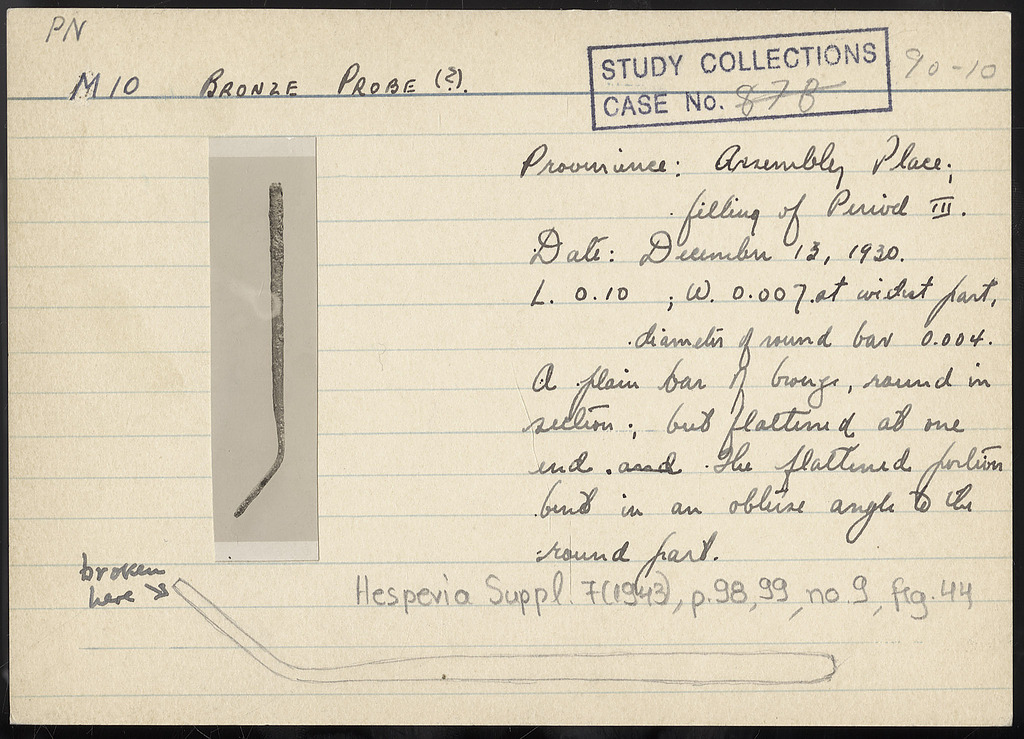 PN
M 10 BRONZE PROBE (?).
STUDY COLLECTIONS
CASE No. 878
90-10
Provenience: Assembly Place;
filling of Period III.
Date: December 13, 1930.
L. 0.10 ; W. 0.007 at widest part,
diameter of round bar 0.004.
A plain bar of bronze, round in
section; but flattened at one
end. and The flattened portion
bent in an obtuse angle to the
round part.
broken
here
Hesperia Suppl. 7(1943), p.98,99, no 9, fig. 44